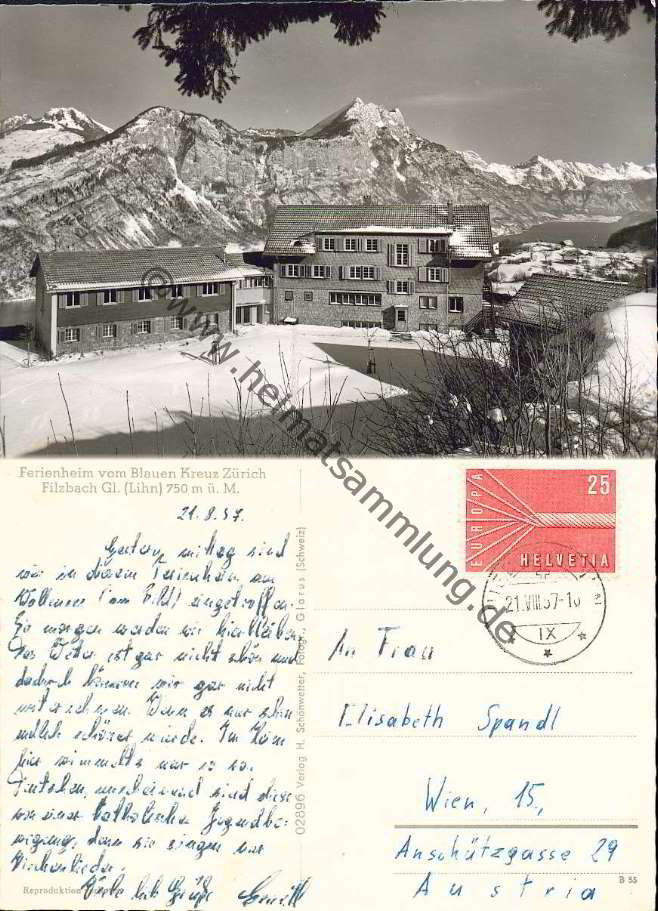 © www.heimatsammlung.de
Ferienheim vom Blauen Kreuz Zürich
Filzbach Gl. (Lihn) 750 m ü. M.
21.8.57.
Gestern mittag sind
wir in diesem Ferienheim am
eingetroffen.
morgen werden wir hierbleiben.
Das Wetter ist gar nicht schön und
dadurch können wir gar nicht
Wenn es nur
schöner würde. Im Heim
hier wimmelts nur so von
Deutschen, anscheinend sind diese
von einer katholischen Jugendbe-
wegung, denn sie singen nur
Kirchenlieder.
Viele lb. Grüße
Reproduktion
02896 Verlag H. Schönwetter, Photogr., Glarus (Schweiz)
EUROPA
25
HELVETIA
21.VIII.57-10
IX
An Frau
Elisabeth Spandl
Wien, 15.,
Anschützgasse 29
Austria
B 55